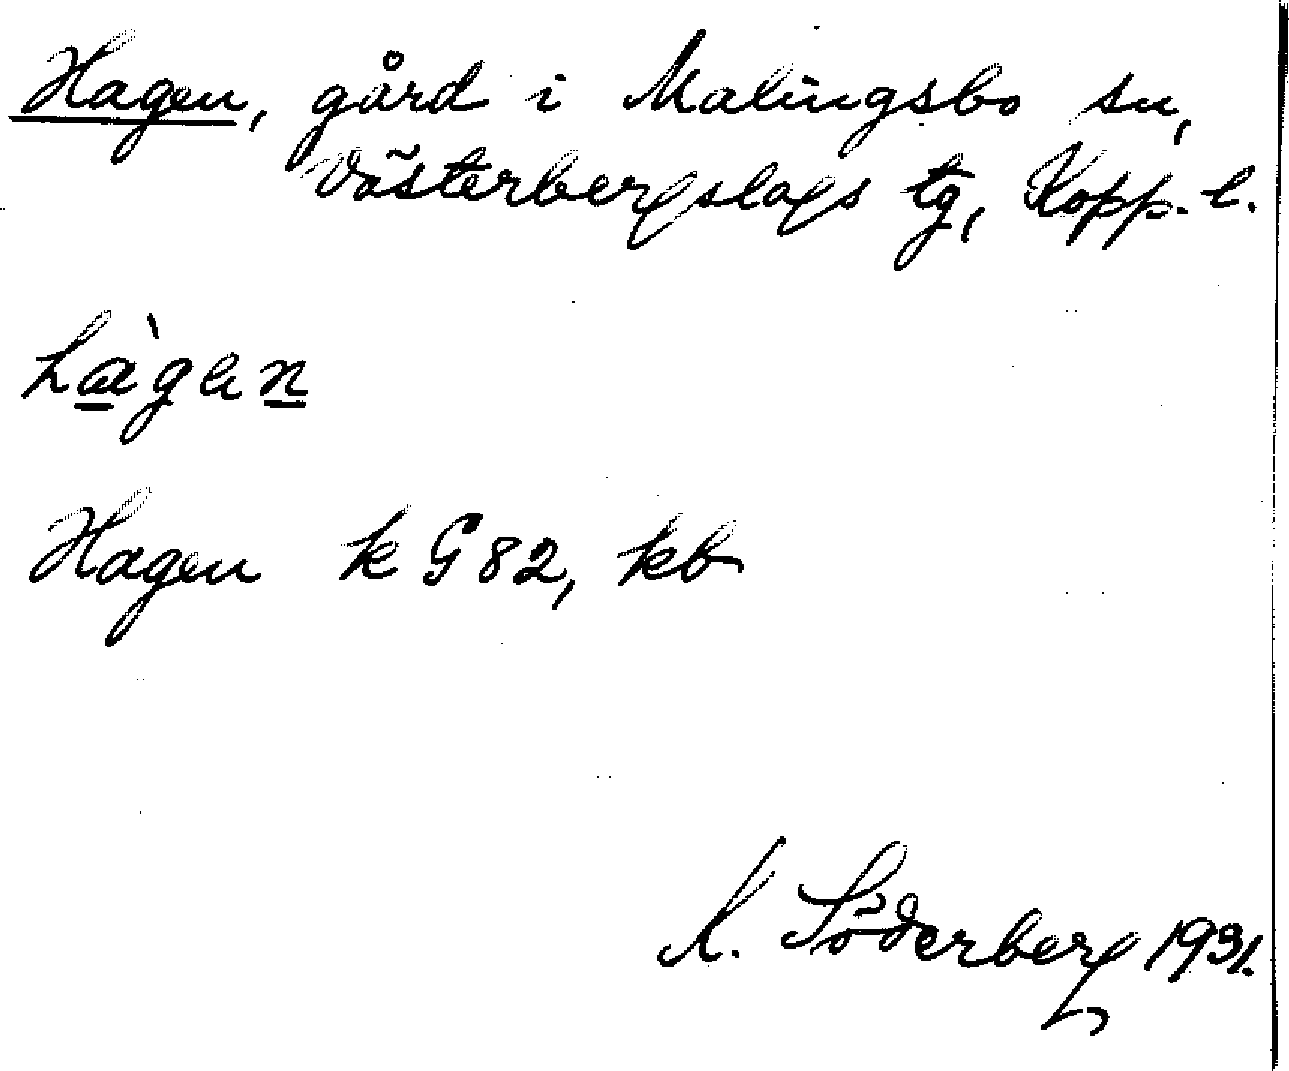 Hagen, gård i Malingsbo sn,
Västerbergslags tg, Kopp. l.
hàgen
Hagen k G 82, kb
Söderberg 1931.